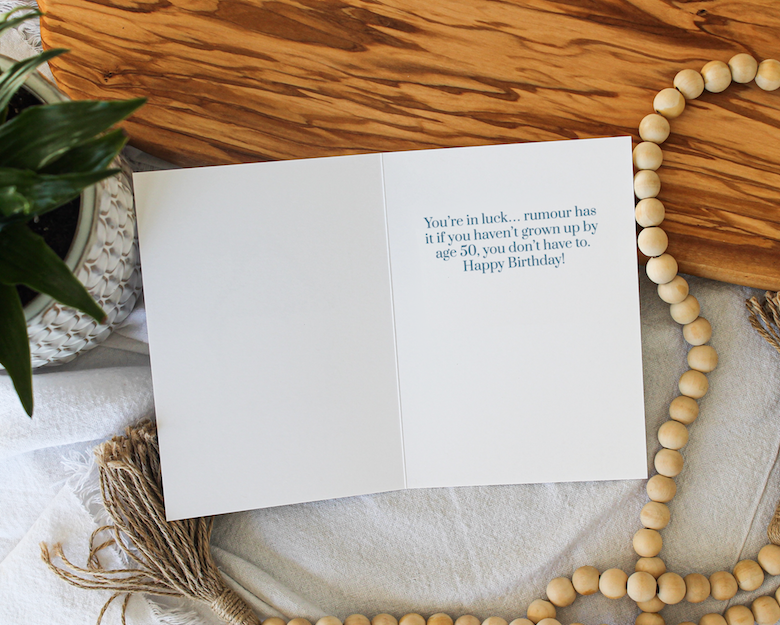 You’re in luck... rumour has
it if you haven’t grown up by
age 50, you don’t have to.
Happy Birthday!